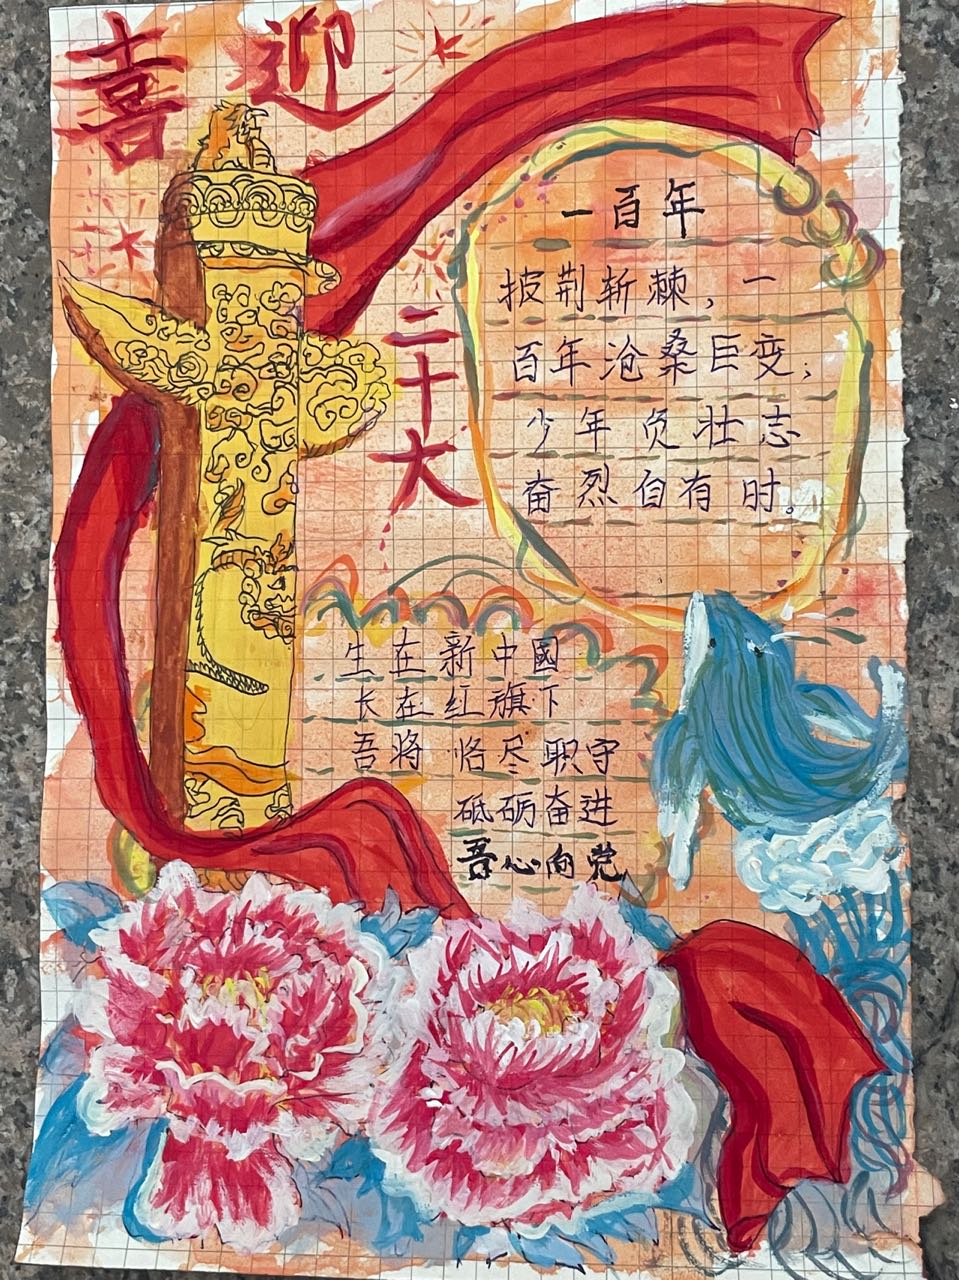 喜迎
二十大
一百年
披荆斩棘，一
百年沧桑巨变；
少年负壮志
奋烈自有时。
生在新中國
长在红旗下
吾将恪尽职守
砥砺奋进
吾心向党